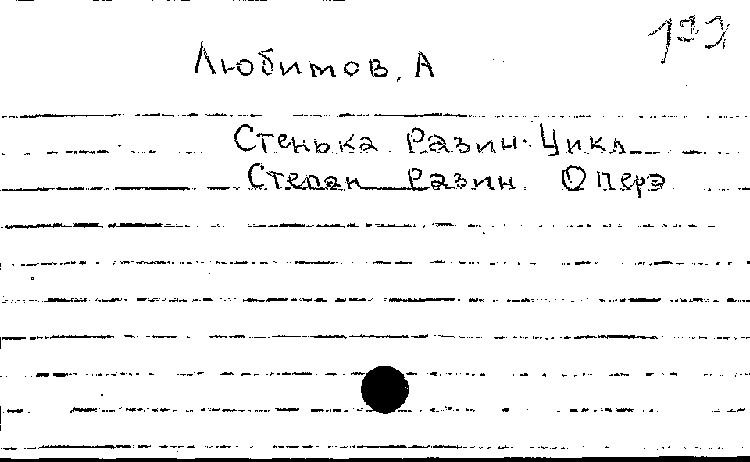 Любимов, А
Стенька Разин. Цикл
Степан Разин. Опера